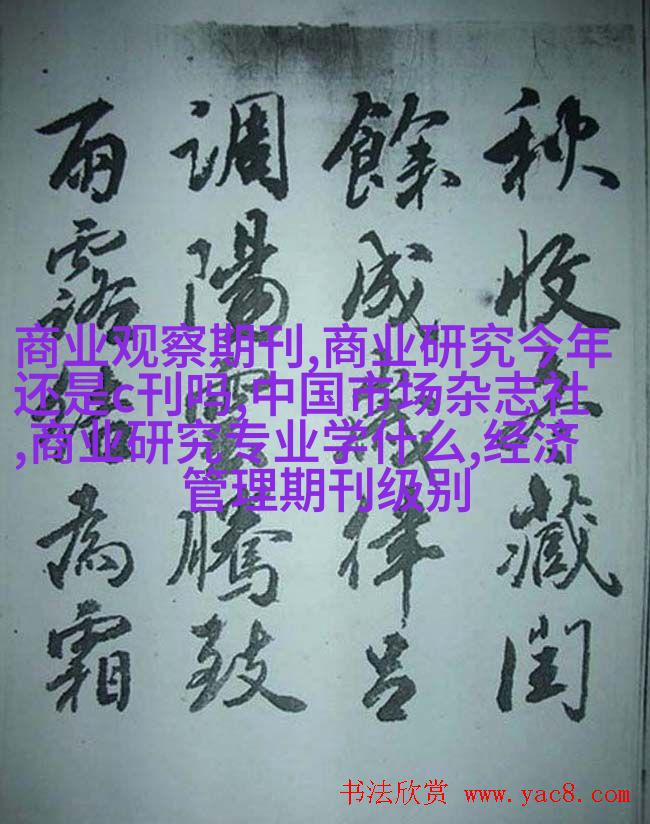 秋收冬藏閏
餘成歲律呂
調陽雲騰致
雨露結為霜
商业观察期刊,商业研究今年
还是c刊吗,中国市场杂志社
,商业研究专业学什么,经济
管理期刊级别
书法欣赏 www.yac8.com